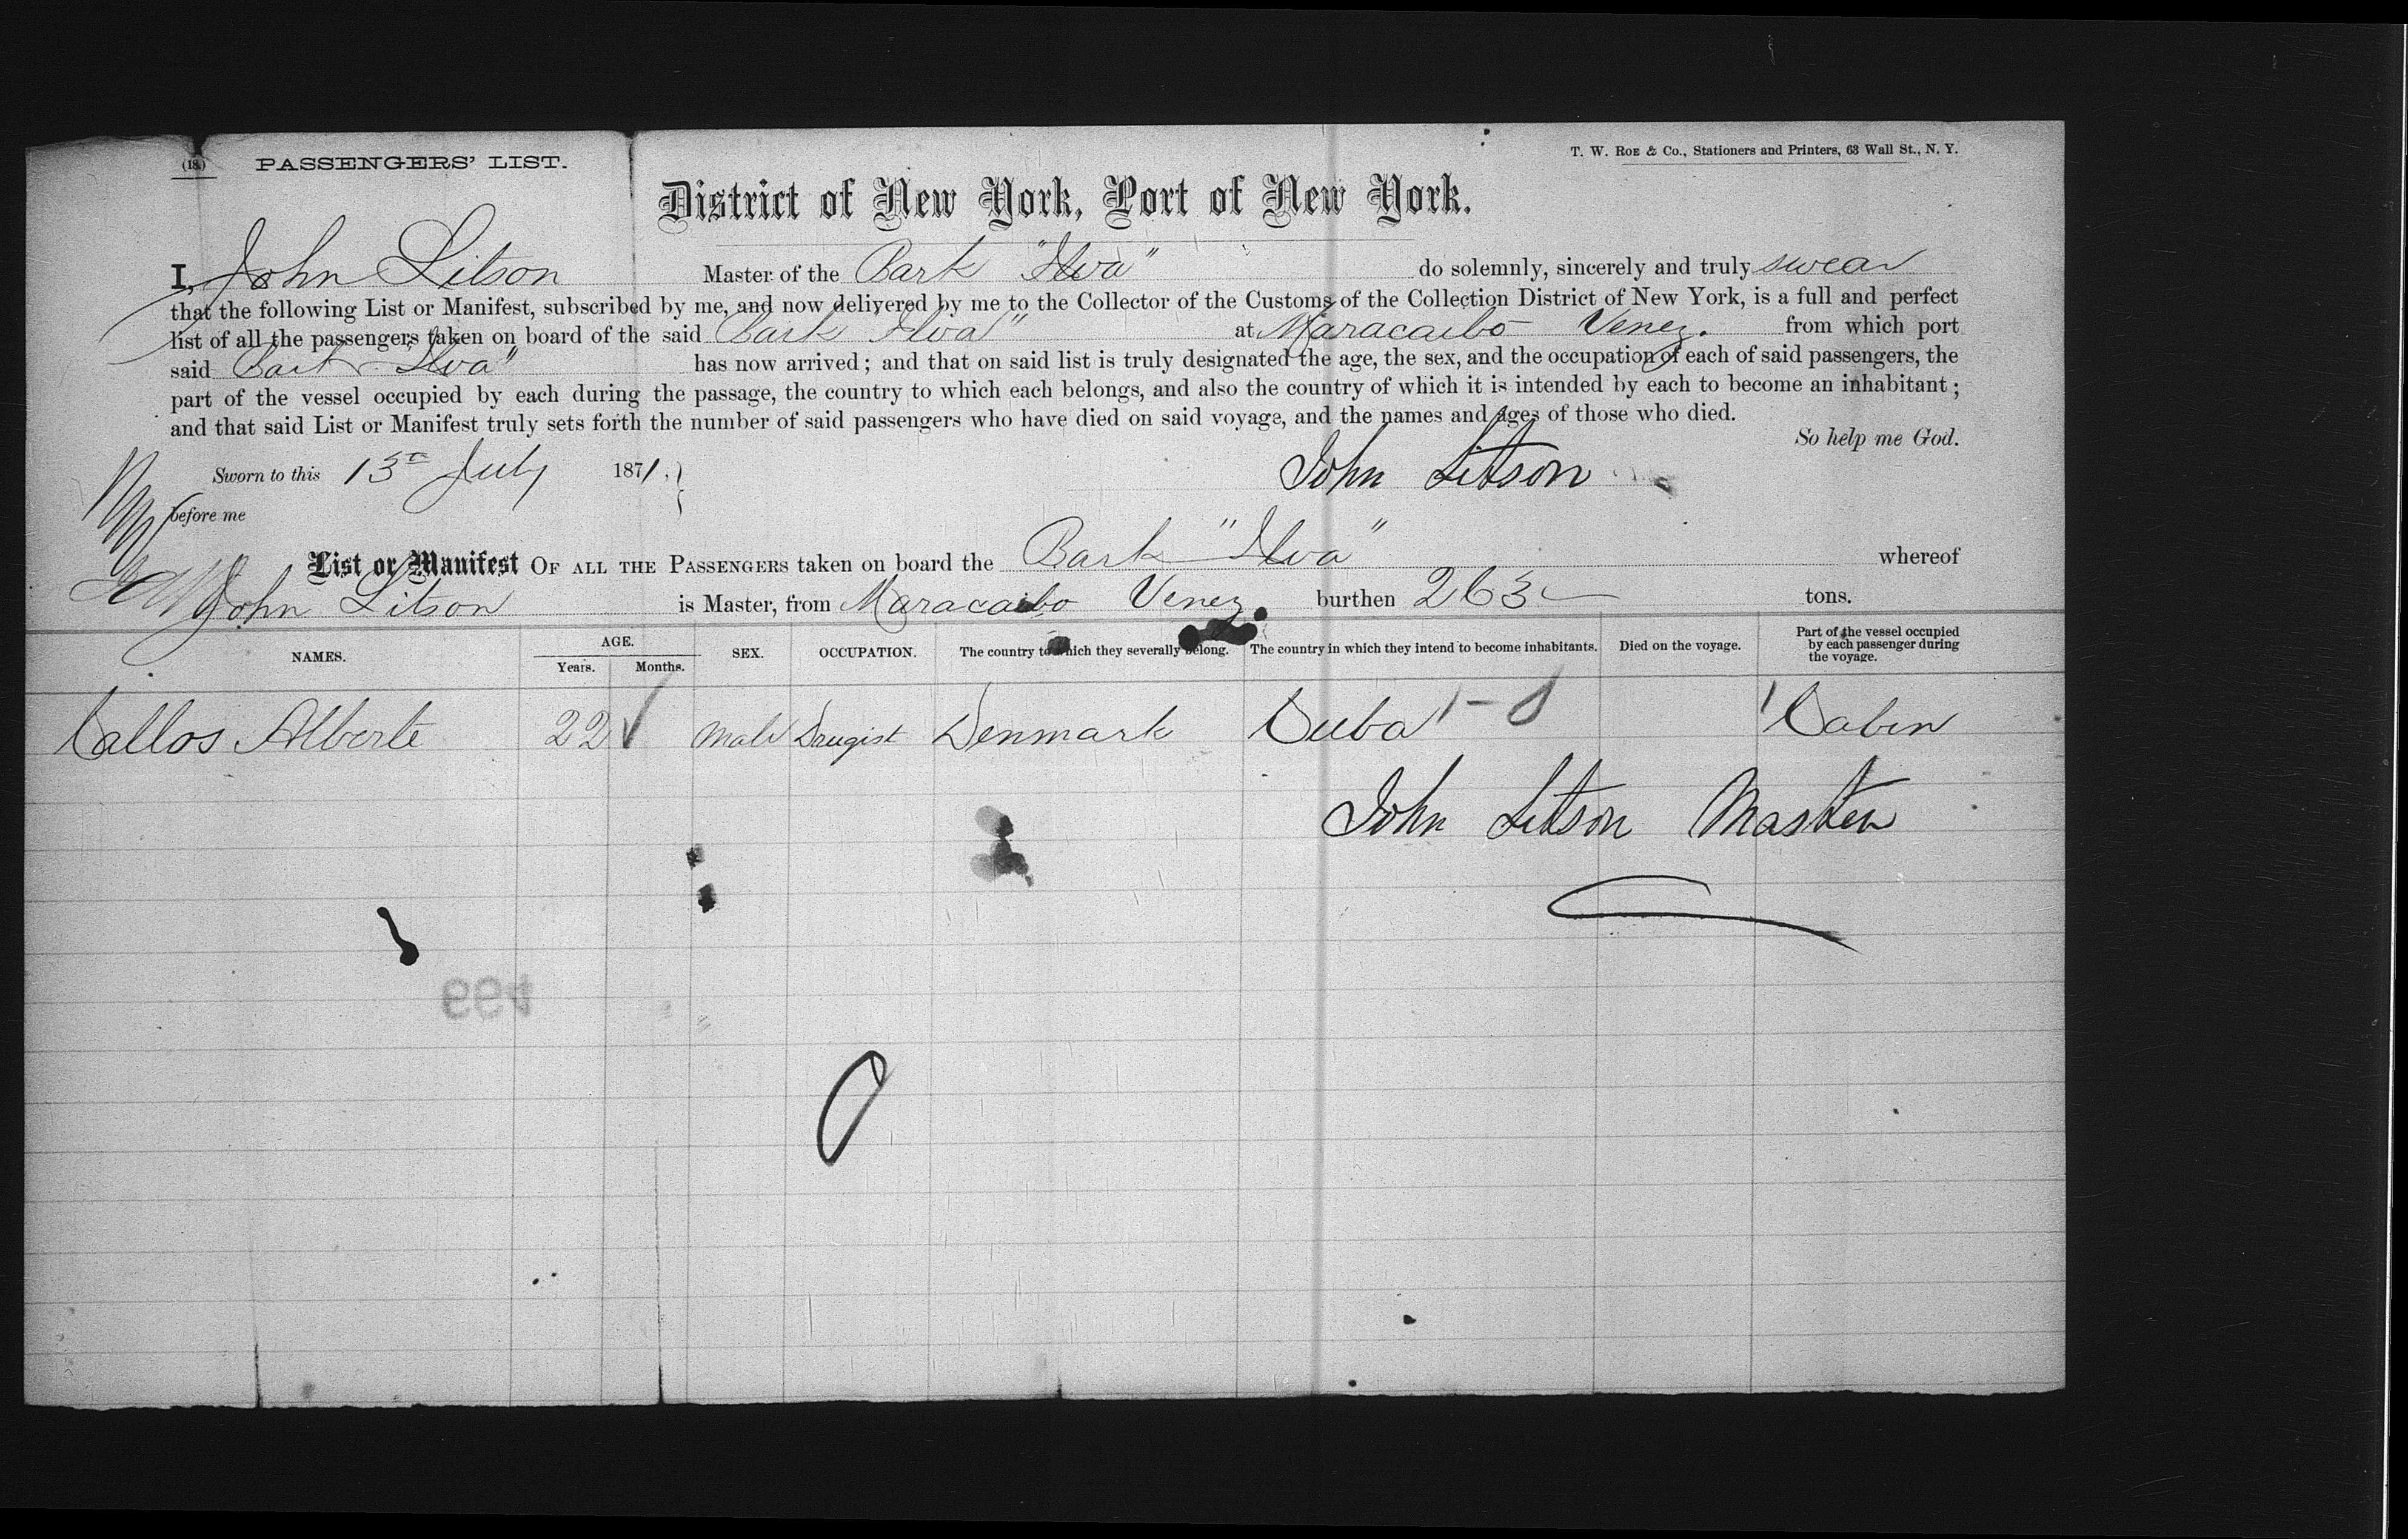 (18.) PASSENGERS' LIST.
T. W. ROE & Co., Stationers and Printers, 63 Wall St., N. Y.
District of New York, Port of New York.
I, John Litson Master of the Bark "Ilva" do solemnly, sincerely and truly swear
that the following List or Manifest, subscribed by me, and now delivered by me to the Collector of the Customs of the Collection District of New York, is a full and perfect
list of all the passengers taken on board of the said Bark Ilva" at Maracaibo Venez. from which port
said Bark "Ilva" has now arrived; and that on said list is truly designated the age, the sex, and the occupation of each of said passengers, the
part of the vessel occupied by each during the passage, the country to which each belongs, and also the country of which it is intended by each to become an inhabitant;
and that said List or Manifest truly sets forth the number of said passengers who have died on said voyage, and the names and ages of those who died.
So help me God.
Sworn to this 13th July 1871. John Litson
before me
List or Manifest OF ALL THE PASSENGERS taken on board the Bark "Ilva" whereof
John Litson is Master, from Maracaibo Venez. burthen 263 tons.
NAMES. AGE. Years. Months. SEX. OCCUPATION. The country to which they severally belong. The country in which they intend to become inhabitants. Died on the voyage. Part of the vessel occupied by each passenger during the voyage.
Callos Alberte 22 ✓ Male Drugist Denmark Cuba 1 Cabin
John Litson Master
499